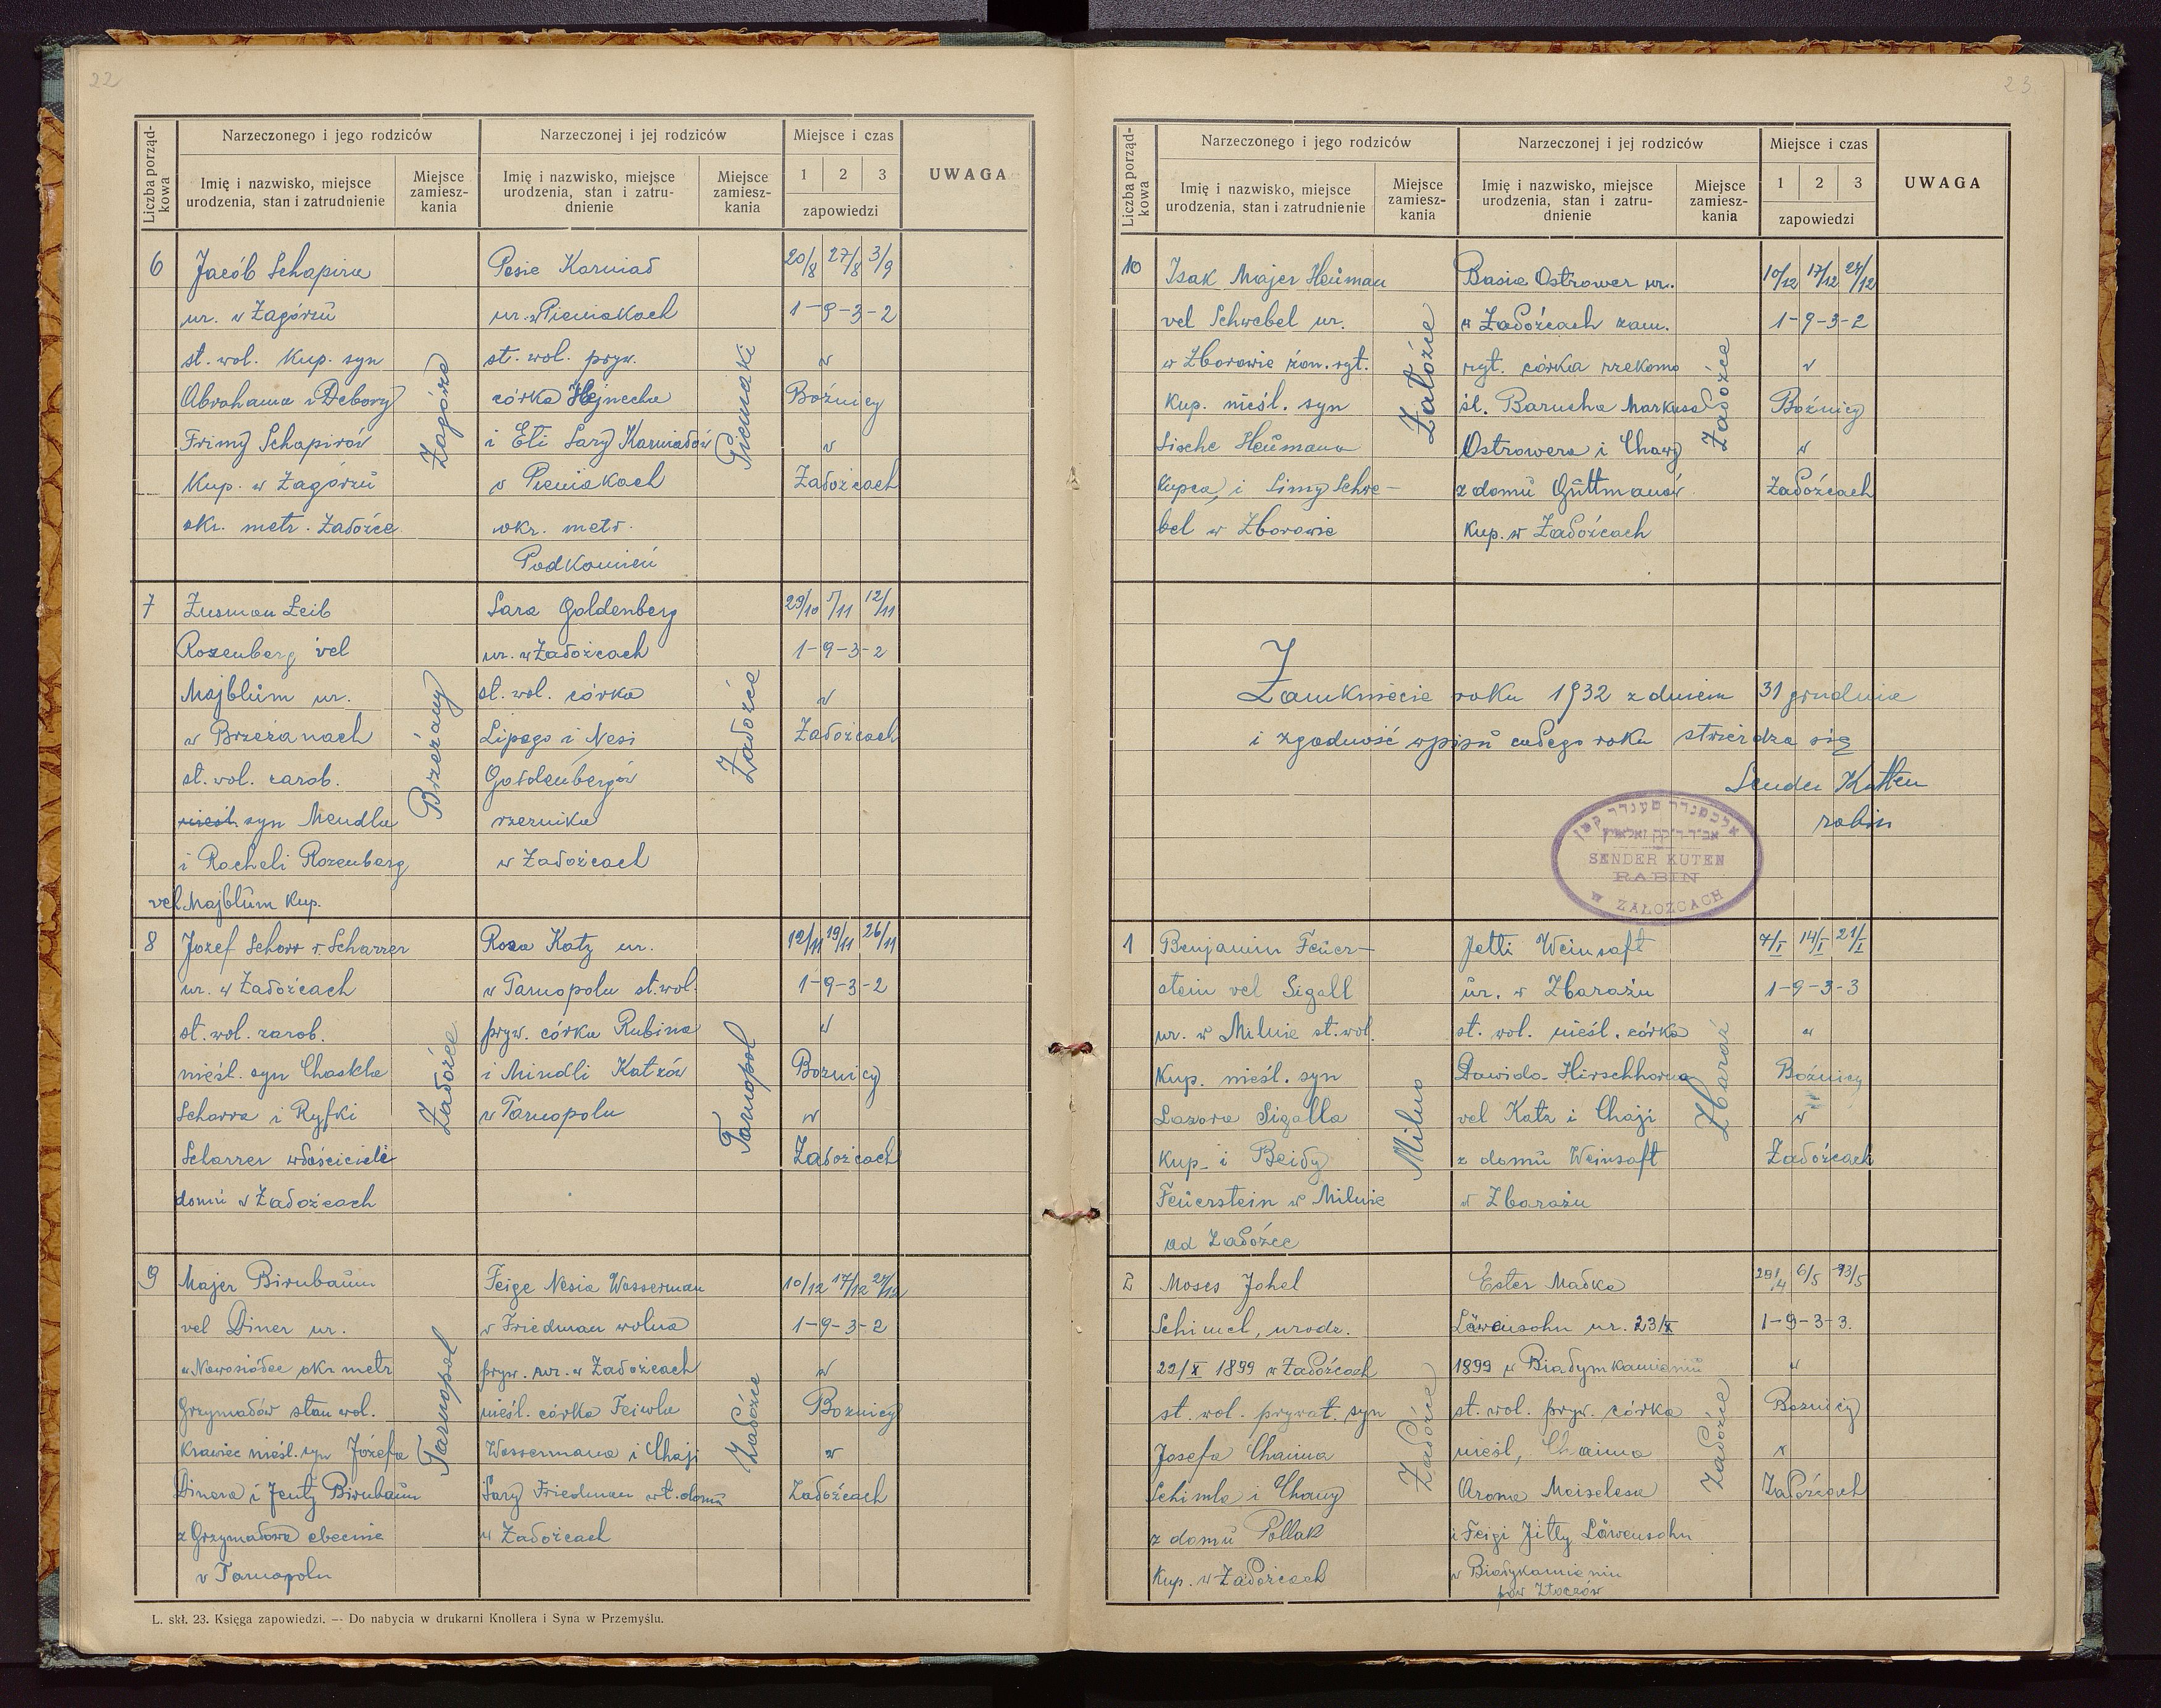 22
Liczba porządkowa
Narzeczonego i jego rodziców
Narzeczonej i jej rodziców
Miejsce i czas
UWAGA
Imię i nazwisko, miejsce urodzenia, stan i zatrudnienie
Miejsce zamieszkania
Imię i nazwisko, miejsce urodzenia, stan i zatrudnienie
Miejsce zamieszkania
1 2 3
zapowiedzi
6
Jacób Schapira
ur. w Zagórzu
st. wol. Kup. syn
Abrahama i Debory
Frimy Schapirów
Kup. w Zagórzu
okr. metr. Załoźce
Zagórze
Pesie Karniad
ur. w Pieniakach
st. wol. pryw.
córka Hejnecha
i Eti Sary Karniadów
w Pieniakach
okr. metr.
Podkamień
Pieniaki
20/8 27/8 3/9
1-9-3-2
w
Bożnicy
w
Załoźcach
7
Zusman Leib
Rozenberg vel
Majblüm ur.
w Brzeżanach
st. wol. zarob.
nieśl. syn Mendla
i Racheli Rozenberg
vel Majblüm Kup.
Brzeżany
Sara Goldenberg
ur. w Załoźcach
st. wol. córka
Lipego i Nesi
Goldenbergów
rzeznika
w Załoźcach
Załoźce
29/10 5/11 12/11
1-9-3-2
w
Załoźcach
8
Jozef Schorr v. Scharrer
ur. w Załoźcach
st. wol. zarob.
nieśl. syn Chaskla
Scharra i Ryfki
Scharrer właściciele
domu w Załoźcach
Załoźce
Roza Katz ur.
w Tarnopolu st. wol.
pryw. córka Rubina
i Mindli Katzów
w Tarnopolu
Tarnopol
12/11 19/11 26/11
1-9-3-2
w
Bożnicy
w
Załoźcach
9
Majer Birnbaüm
vel Diner ur.
w Nowosiółce okr. metr
Grzymałów stan wol.
Krawiec nieśl. syn Józefa
Dinera i Jenty Birnbaüm
z Grzymałowa obecnie
w Tarnopolu
Tarnopol
Feige Nesia Wasserman
v Friedman wolna
pryw. ur. w Załoźcach
nieśl. córka Feiwla
Wassermana i Chaji
Sary Friedman wł. domü
w Załoźcach
Załoźce
10/12 17/12 24/12
1-9-3-2
w
Bożnicy
w
Załoźcach
L. skł. 23. Księga zapowiedzi. — Do nabycia w drukarni Knollera i Syna w Przemyślu.
23
Liczba porządkowa
Narzeczonego i jego rodziców
Narzeczonej i jej rodziców
Miejsce i czas
UWAGA
Imię i nazwisko, miejsce urodzenia, stan i zatrudnienie
Miejsce zamieszkania
Imię i nazwisko, miejsce urodzenia, stan i zatrudnienie
Miejsce zamieszkania
1 2 3
zapowiedzi
10
Isak Majer Heüman
vel Schwebel ur.
w Zborowie żon. ryt.
Kup. nieśl. syn
Sische Heümana
Kupca, i Simy Schwe-
bel w Zborowie
Załoźce
Basie Ostrower ur.
w Załoźcach zam.
ryt. córka rzekomo
śl. Barucha Markusa
Ostrowera i Chawy
z domü Güttmanów
Kup. w Załoźcach
Załoźce
10/12 17/12 24/12
1-9-3-2
w
Bożnicy
w
Załoźcach
Zamknięcie roku 1932 z dniem 31 grudnia
i zgodność wpisü całego roku stwierdza się
Sender Kutten
rabin
SENDER KUTEN
RABIN
W ZAŁOZCACH
1
Benjamin Feüer-
stein vel Sigall
ur. w Milnie st. wol.
Kup. nieśl. syn
Lazora Sigalla
Kup. i Beiły
Feüerstein w Milnie
ad Załoźce
Milno
Jetti Weinsaft
ür. w Zbarażu
st. wol. nieśl. córka
Dawida Hirschhorna
vel Katz i Chaji
z domü Weinsaft
w Zbarażu
Zbaraż
7/I 14/I 21/I
1-9-3-3
w
Bożnicy
w
Załoźcach
2
Moses Johel
Schimel, urodz.
22/X 1899 w Załoźcach
st. wol. prywat. syn
Josefa Chaima
Schimla i Chany
z domü Pollak
Kup. w Załoźcach
Załoźce
Ester Małka
Läweusohn ur. 23/X
1899 w Białymkamieniü
st. wol. pryw. córka
nieśl, Chaima
Arona Meiselesa
i Feigi Jitty Läwensohn
w Białykamieniu
pow Złoczów
Załoźce
29/4 6/5 13/5
1-9-3-3.
w
Bożnicy
w
Załoźcach